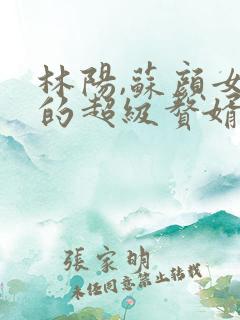 林陽,蘇顔女
的超級贅婿
張家明
未任同意禁止转载